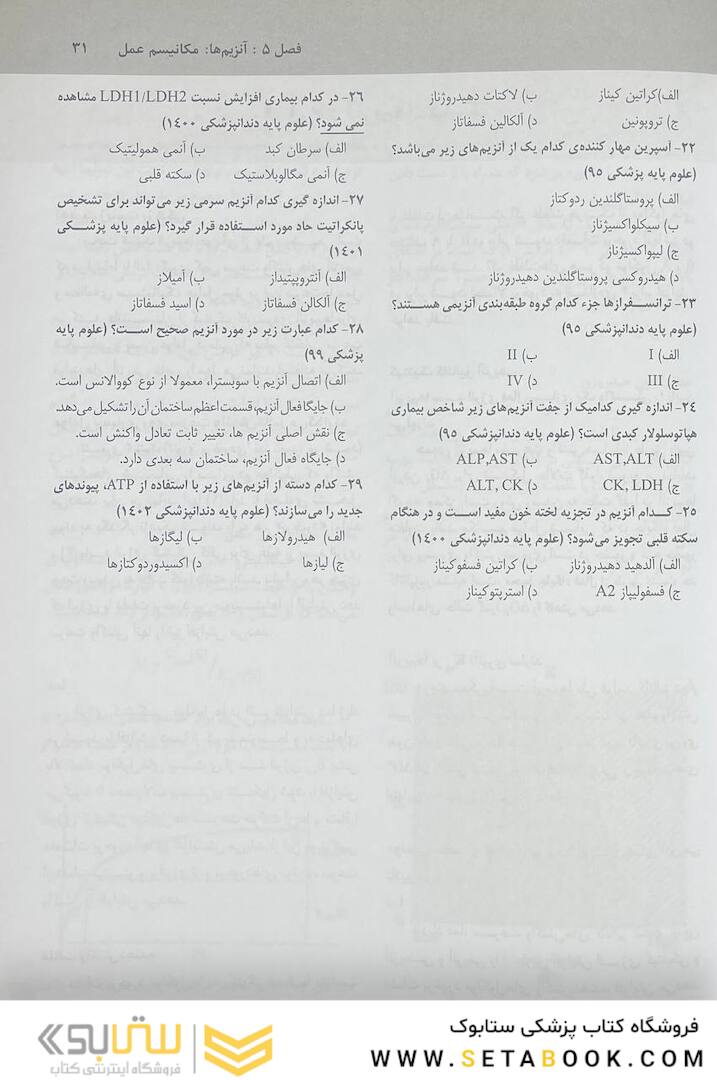 فصل ۵ : آنزیم‌ها: مکانیسم عمل ۳۱
الف)کراتین کیناز ب) لاکتات دهیدروژناز
ج) تروپونین د) آلکالین فسفاتاز
۲۲- آسپرین مهار کننده‌ی کدام یک از آنزیم‌های زیر می‌باشد؟
(علوم پایه پزشکی ۹۵)
الف) پروستاگلندین ردوکتاز
ب) سیکلواکسیژناز
ج) لیپواکسیژناز
د) هیدروکسی پروستاگلندین دهیدروژناز
۲۳- ترانسـفرازها جزء کدام گروه طبقه‌بندی آنزیمی هسـتند؟
(علوم پایه دندانپزشکی ۹۵)
الف) I ب) II
ج) III د) IV
۲۴- اندازه گیری کدامیک از جفت آنزیم‌های زیر شاخص بیماری
هپاتوسلولار کبدی است؟ (علوم پایه دندانپزشکی ۹۵)
الف) AST,ALT ب) ALP,AST
ج) CK, LDH د) ALT, CK
۲۵- کـدام آنزیم در تجزیه لخته خون مفید اسـت و در هنگام
سکته قلبی تجویز می‌شود؟ (علوم پایه دندانپزشکی ۱۴۰۰)
الف) آلدهید دهیدروژناز ب) کراتین فسفوکیناز
ج) فسفولیپاز A2 د) استرپتوکیناز
۲۶- در کدام بیماری افزایش نسبت LDH1/LDH2 مشاهده
نمی شود؟ (علوم پایه دندانپزشکی ۱۴۰۰)
الف) سرطان کبد ب) آنمی همولیتیک
ج) آنمی مگالوبلاستیک د) سکته قلبی
۲۷- اندازه گیری کدام آنزیم سرمی زیر می‌تواند برای تشخیص
پانکراتیت حاد مورد اسـتفاده قرار گیرد؟ (علوم پایه پزشـکی
۱۴۰۱)
الف) آنتروپپتیداز ب) آمیلاز
ج) آلکالن فسفاتاز د) اسید فسفاتاز
۲۸- کدام عبارت زیر در مورد آنزیم صحیح اسـت؟ (علوم پایه
پزشکی ۹۹)
الف) اتصال آنزیم با سوبسترا، معمولا از نوع کووالانس است.
ب) جایگاه فعال آنزیم، قسمت اعظم ساختمان آن را تشکیل می‌دهد.
ج) نقش اصلی آنزیم ها، تغییر ثابت تعادل واکنش است.
د) جایگاه فعال آنزیم، ساختمان سه بعدی دارد.
۲۹- کدام دسته از آنزیم‌های زیر با استفاده از ATP، پیوندهای
جدید را می‌سازند؟ (علوم پایه دندانپزشکی ۱۴۰۲)
الف) هیدرولازها ب) لیگازها
ج) لیازها د) اکسیدوردوکتازها
فروشگاه کتاب پزشکی ستابوک
WWW.SETABOOK.COM
ستابوک
فروشگاه اینترنتی کتاب